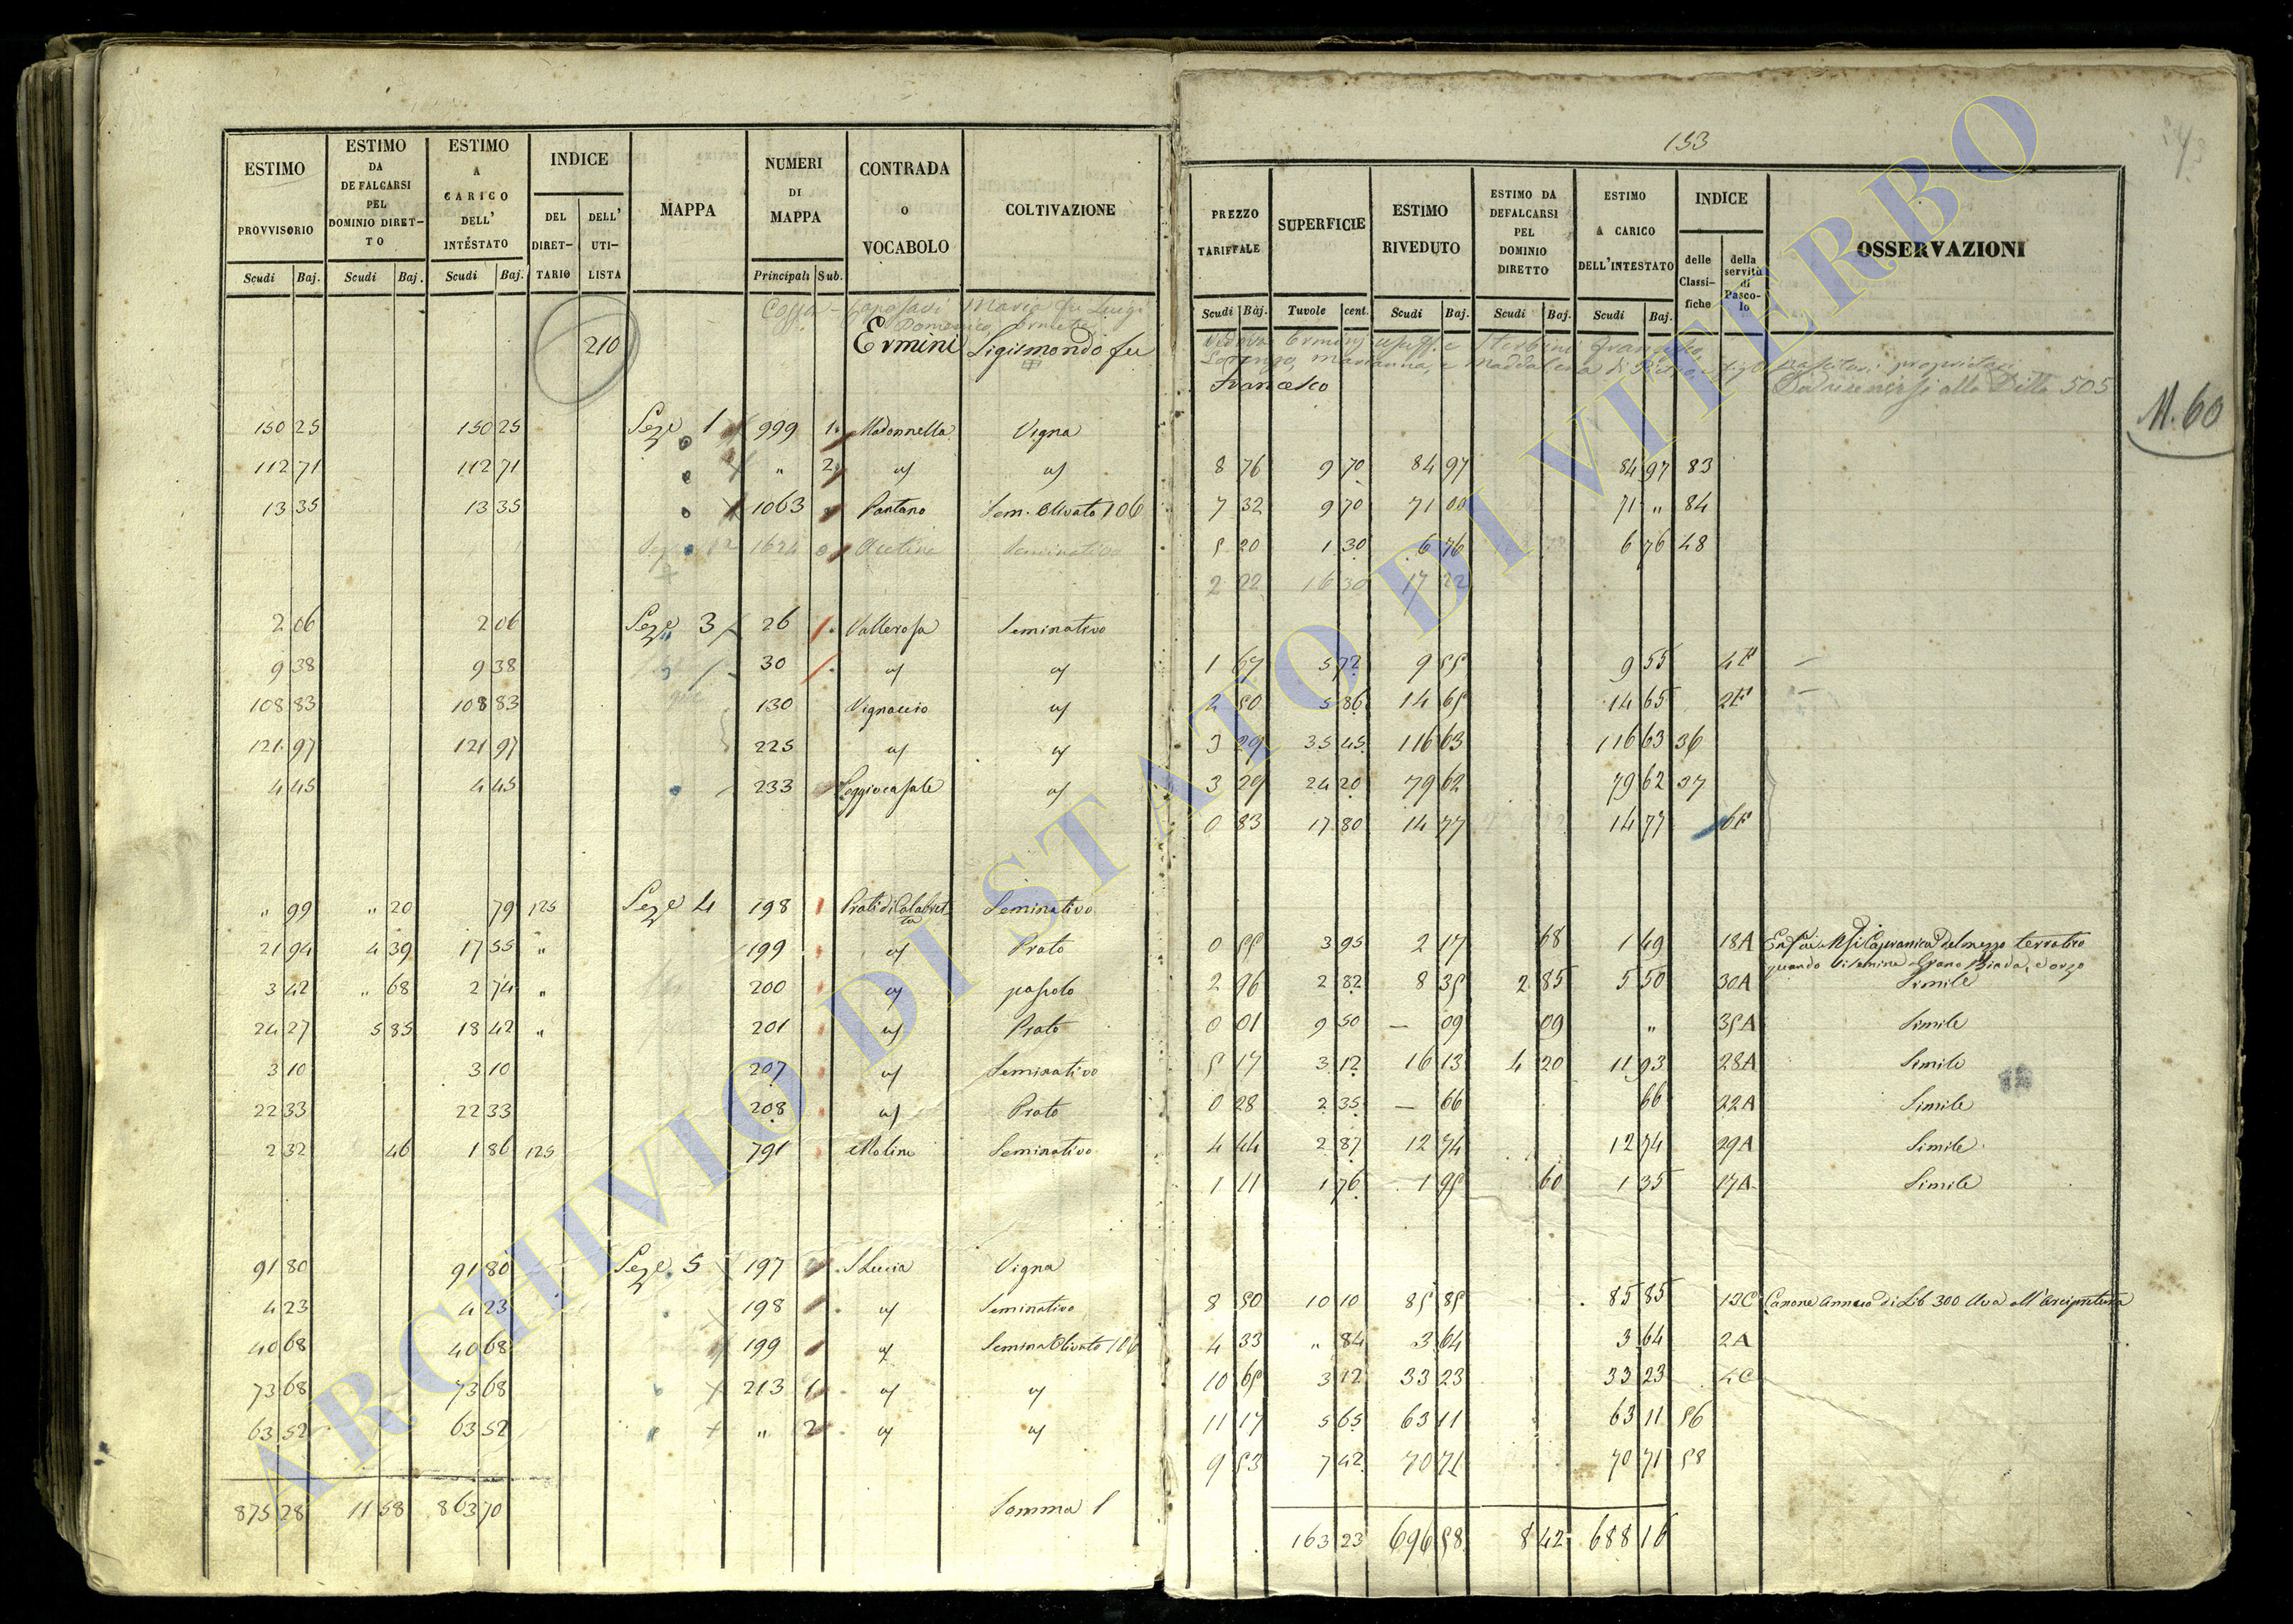 133
ESTIMO PROVVISORIO | ESTIMO DA DEFALCARSI PEL DOMINIO DIRETTO | ESTIMO A CARICO DELL' INTESTATO | INDICE DEL DIRETTARIO | DELL' UTILISTA | MAPPA | NUMERI DI MAPPA | CONTRADA O VOCABOLO | COLTIVAZIONE
Scudi Baj. | Scudi Baj. | Scudi Baj. | Principali Sub.
Maria fu Luigi
210 Ermini Sigismondo fu
150 25 | 150 25 | Seze 1 | 999 1 | Madonnella | Vigna
112 71 | 112 71 | " 2 | a/ | a/
13 35 | 13 35 | 1063 | Pantano | Sem. Olivato 106
1624 | Seminativo
2 06 | 2 06 | Seze 3 | 26 | Vallerosa | Seminativo
9 38 | 9 38 | 30 | a/ | a/
108 83 | 108 83 | 130 | Vignaccio | a/
121 97 | 121 97 | 225 | a/ | a/
4 45 | 4 45 | 233 | Poggiocasale | a/
" 99 | " 20 | 79 | 125 | Seze 4 | 198 | Prati di Calabretta | Seminativo
21 94 | 4 39 | 17 55 | " | 199 | a/ | Prato
3 42 | " 68 | 2 74 | " | 200 | a/ | pascolo
24 27 | 5 85 | 18 42 | " | 201 | a/ | Prato
3 10 | 3 10 | 207 | a/ | Seminativo
22 33 | 22 33 | 208 | a/ | Prato
2 32 | 46 | 1 86 | 125 | 791 | Molino | Seminativo
91 80 | 91 80 | Seze 5 | 197 | S Lucia | Vigna
4 23 | 4 23 | 198 | a/ | Seminativo
40 68 | 40 68 | 199 | a/ | Semina Olivato 106
73 68 | 73 68 | 213 1 | a/ | a/
63 52 | 63 52 | " 2 | a/ | a/
875 28 | 11 58 | 863 70 | Somma
PREZZO TARIFFALE | SUPERFICIE | ESTIMO RIVEDUTO | ESTIMO DA DEFALCARSI PEL DOMINIO DIRETTO | ESTIMO A CARICO DELL'INTESTATO | INDICE delle Classifiche | della servitù di Pascolo | OSSERVAZIONI
Scudi Baj. | Tavole cent. | Scudi Baj. | Scudi Baj. | Scudi Baj.
Lorenzo, Marianna, e Maddalena
Francesco
alla Ditta 505
M. 60
8 76 | 9 70 | 84 97 | 84 97 | 83
7 32 | 9 70 | 71 00 | 71 " | 84
5 20 | 1 30 | 6 76 | 6 76 | 48
2 22 | 16 30 | 17 22
1 67 | 5 72 | 9 55 | 9 55 | 4F
2 50 | 5 86 | 14 65 | 14 65 | 2F
3 29 | 35 45 | 116 63 | 116 63 | 36
3 29 | 24 20 | 79 62 | 79 62 | 37
0 83 | 17 80 | 14 77 | 14 77 | 6F
0 55 | 3 95 | 2 17 | 68 | 1 49 | 18A | Capranica del mezzo terratico
quando si semina Grano Biada, e orzo
2 96 | 2 82 | 8 35 | 2 85 | 5 50 | 30A | Simile
0 01 | 9 50 | — 09 | 09 | " | 35A | Simile
5 17 | 3 12 | 16 13 | 4 20 | 11 93 | 28A | Simile
0 28 | 2 35 | — 66 | 66 | 22A | Simile
4 44 | 2 87 | 12 74 | 12 74 | 29A | Simile
1 11 | 1 76 | 1 95 | 60 | 1 35 | 17A | Simile
8 50 | 10 10 | 85 85 | 85 85 | 12C | Canone annuo di Lib 300 Uva all'Arcipretura
4 33 | " 84 | 3 64 | 3 64 | 2A
10 65 | 3 12 | 33 23 | 33 23 | 4C
11 17 | 5 65 | 63 11 | 63 11 | 56
9 53 | 7 42 | 70 71 | 70 71 | 58
163 23 | 696 58 | 8 42 | 688 16
ARCHIVIO DI STATO DI VITERBO